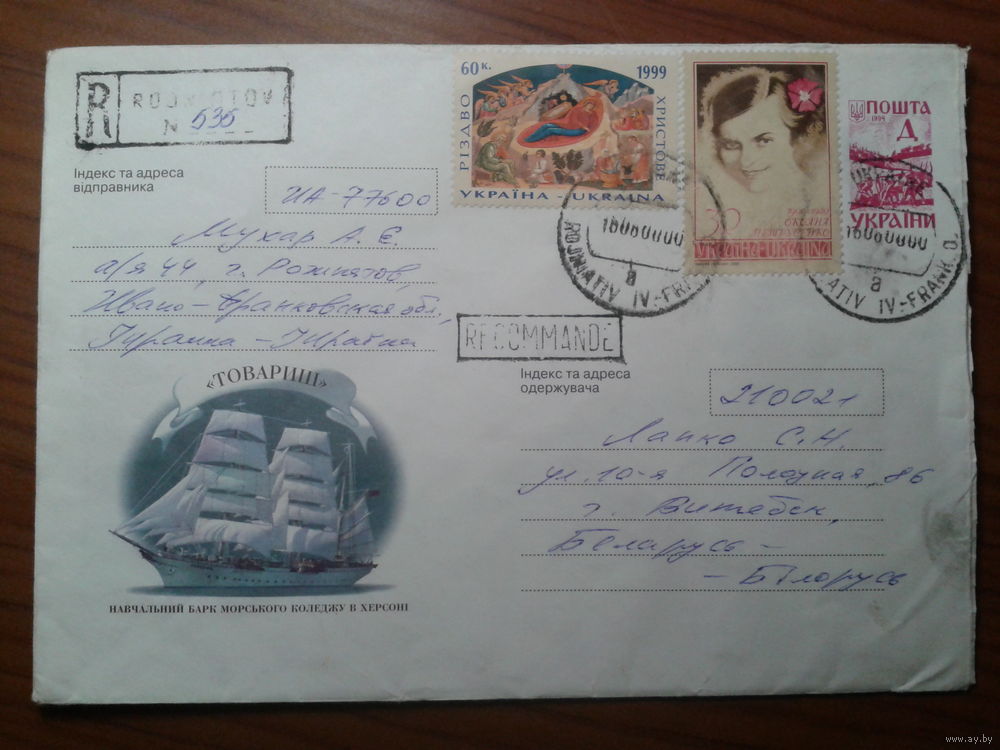 R
ROJNIATOV
N 535
60 к. 1999
РІЗДВО
ХРИСТОВЕ
УКРАЇНА - UKRAINA
30
ОКСАНА
УКРАЇНА-UKRAINA
ПОШТА
1994
Д
УКРАЇНИ
ROJNIATIV IV.-FRANK
а
ATIV IV.-FRANK O.
а
Індекс та адреса
відправника
UA-77600
Мухар А. Є.
а/я 44, г. Рожнятов,
Ивано-Франковская обл.,
Украина - Україна
RECOMMANDE
Індекс та адреса
одержувача
210021
Лапко С.Н.
ул. 10-я Полоцкая, 86
г. Витебск,
Беларусь -
- Білорусь
«ТОВАРИШ»
НАВЧАЛЬНИЙ БАРК МОРСЬКОГО КОЛЕДЖУ В ХЕРСОНІ
www.ay.by